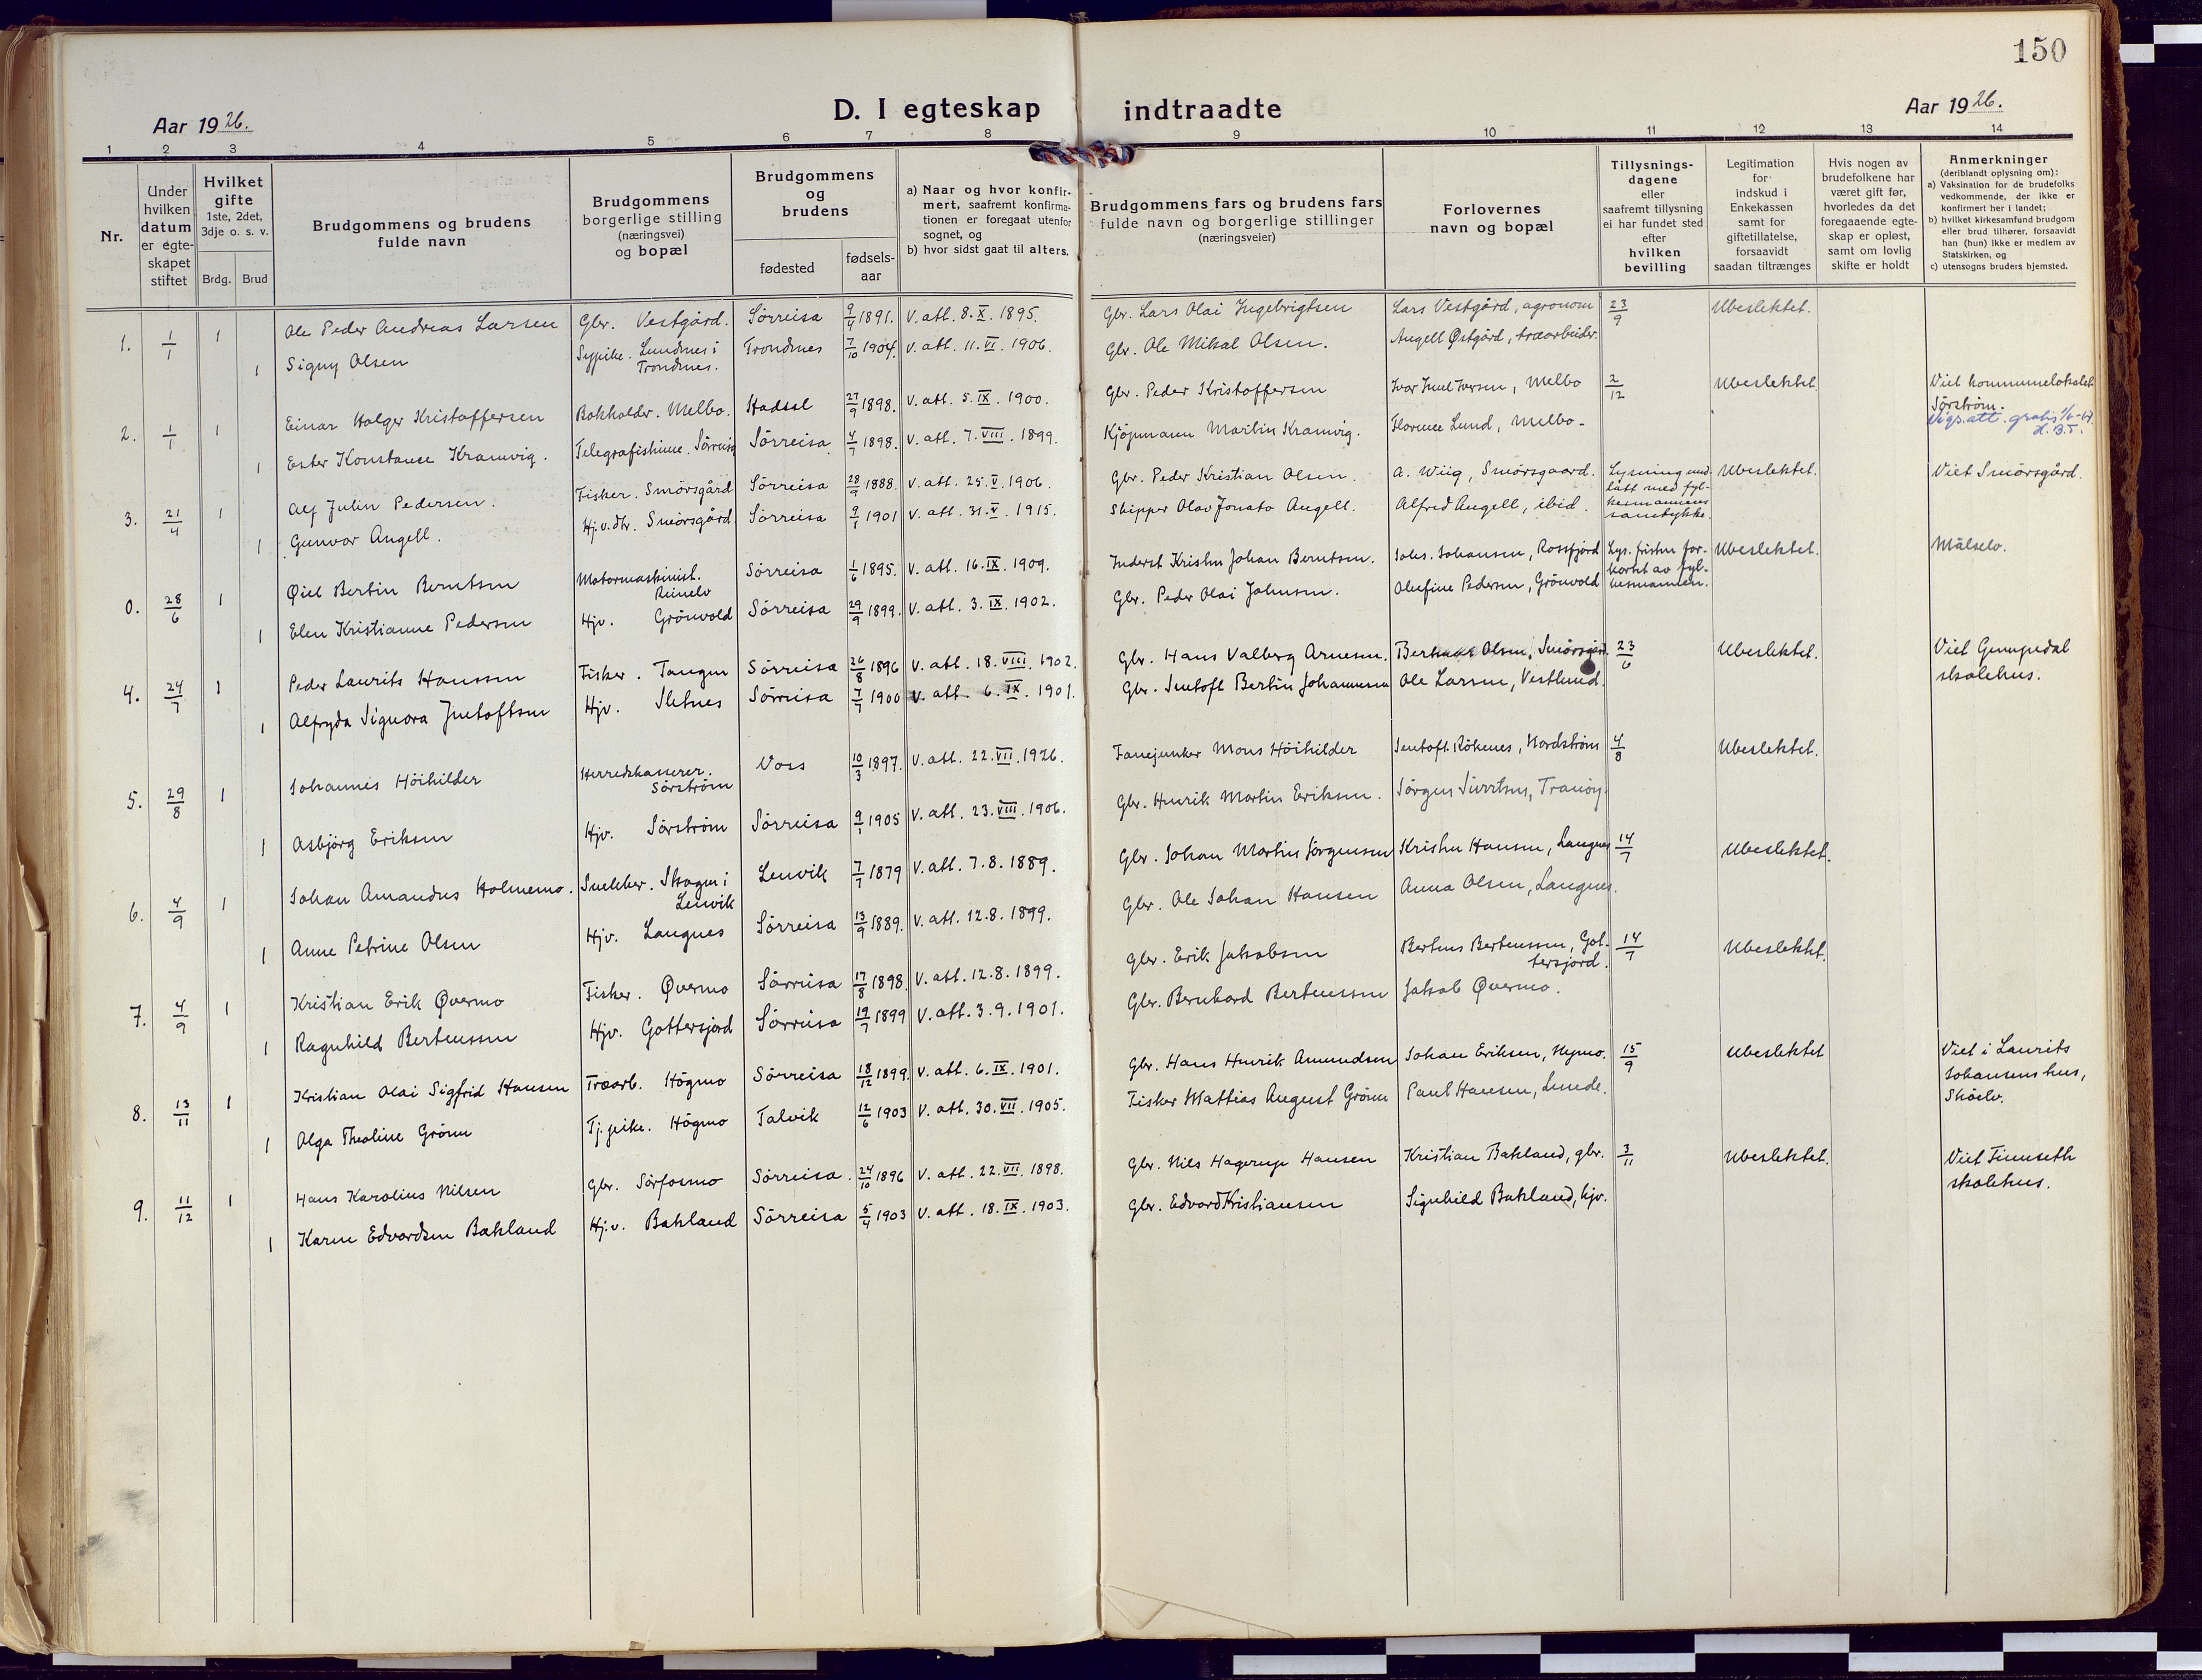 150
D. I egteskap indtraadte
Aar 1926.
Aar 1926.
1 2 3 4 5 6 7 8 9 10 11 12 13 14
Nr.
Under hvilken datum er egteskapet stiftet
Hvilket gifte 1ste, 2det, 3dje o. s. v.
Brdg. Brud
Brudgommens og brudens fulde navn
Brudgommens borgerlige stilling (næringsvei) og bopæl
Brudgommens og brudens
fødested
fødsels-aar
a) Naar og hvor konfirmert, saafremt konfirmationen er foregaat utenfor sognet, og
b) hvor sidst gaat til alters.
Brudgommens fars og brudens fars fulde navn og borgerlige stillinger (næringsveier)
Forlovernes navn og bopæl
Tillysningsdagene eller saafremt tillysning ei har fundet sted efter hvilken bevilling
Legitimation for indskud i Enkekassen samt for giftetillatelse, forsaavidt saadan tiltrænges
Hvis nogen av brudefolkene har været gift før, hvorledes da det foregaaende egteskap er opløst, samt om lovlig skifte er holdt
Anmerkninger (deriblandt oplysning om):
a) Vaksination for de brudefolks vedkommende, der ikke er konfirmert her i landet;
b) hvilket kirkesamfund brudgom eller brud tilhører, forsaavidt han (hun) ikke er medlem av Statskirken, og
c) utensogns bruders hjemsted.
1. 1/1 1 Ole Peder Andreas Larsen Gbr. Vestgård. Sørreisa 9/4 1891. V. att. 8. X. 1895. Gbr. Lars Olai Ingebrigtsen Lars Vestgård, agronom 23/9 Ubeslektet.
1 Signy Olsen Sypike. Lundnes i Trondnes. Trondnes 7/10 1904. V. att. 11. VI. 1906. Gbr. Ole Mikal Olsen. Angell Østgård, træarbeider.
2. 1/1 1 Einar Holger Kristoffersen Bokholder. Melbo. Hadsel 27/9 1898. V. att. 5. IX. 1900. Gbr. Peder Kristoffersen Ivar Juul Iversen, Melbo 2/12 Ubeslektet. Viet kommunelokalet Sørstrøm.
Vigs.att. gratis 1/6-67. H.B.T.
1 Ester Konstanse Kramvig. Telegrafistinne. Sørreisa Sørreisa. 4/7 1898. V. att. 7. VIII. 1899. Kjøpmann Martin Kramvig. Florence Lund, Melbo.
3. 21/4 1 Alf Julin Pedersen. Fisker. Smörsgård Sørreisa 28/9 1888. V. att. 25. V. 1906. Gbr. Peder Kristian Olsen. A. Wiig, Smörsgaard. Lysning undlatt med fylkesmannens samtykke. Ubeslektet. Viet Smörsgård.
1 Gunvor Angell. Hj.v.dtr. Smörsgård. Sørreisa 9/1 1901 V. att. 31. V. 1915. Skipper Olav Jonato Angell. Alfred Angell, ibid.
0. 28/6 1 Øiel Bertin Berntsen Motormaskinist. Reinelv Sørreisa 1/6 1895. V. att. 16. IX. 1909. Inderst Kristen Johan Berntsen. Johs. Johansen, Rossfjord Lys. fristen forkortet av fylkesmannen. Ubeslektet. Målselv.
1 Elen Kristianne Pedersen Hjv. Grönvold Sørreisa 29/9 1899. V. att. 3. IX. 1902. Gbr. Peder Olai Johnsen. Olufine Pedersen, Grönvold
4. 24/7 1 Peder Laurits Hanssen Fisker. Tangen Sørreisa 26/8 1896 V. att. 18. VIII. 1902. Gbr. Hans Valberg Arnesen. Olsen, Smörsgård. 23/6 Ubeslektet. Viet Gumpedal skolehus.
1 Alfryda Signora Jentoftsen Hjv. Sletnes Sørreisa 7/7 1900 V. att. 6. IX. 1901. Gbr. Jentoft Bertin Johannesen Ole Larsen, Vestlund.
5. 29/8 1 Johannes Höihilder Herredskasserer. Sørstrøm Voss 10/3 1897. V. att. 22. VII. 1926. Fanejunker Mons Höihilder Jentoft Rökenes, Nordström 4/8 Ubeslektet.
1 Asbjörg Eriksen Hjv. Sørstrøm Sørreisa 9/1 1905 V. att. 23. VIII. 1906. Gbr. Henrik Martin Eriksen. Jørgen Sivertsen, Tranöy.
6. 4/9 1 Johan Amandus Holmemo. Snekker. Skogen i Lenvik Lenvik 7/7 1879 V. att. 7.8. 1889. Gbr. Johan Martin Jörgensen Kristen Hansen, Langnes 14/7 Ubeslektet.
1 Anne Petrine Olsen Hjv. Langnes Sørreisa 13/9 1889. V. att. 12.8. 1899. Gbr. Ole Johan Hansen Anna Olsen, Langnes.
7. 4/9 1 Kristian Erik Øvermo Fisker. Øvermo Sørreisa 17/8 1898. V. att. 12.8. 1899. Gbr. Erik Jakobsen Bertens Bertenssen, Gottersjord. 14/7 Ubeslektet.
1 Ragnhild Bertenssen Hjv. Gottersjord Sørreisa 19/7 1899 V. att. 3.9. 1901. Gbr. Bernhard Bertenssen Jakob Øvermo.
8. 13/11 1 Kristian Olai Sigfrid Hansen Træarb. Högmo Sørreisa 18/12 1899. V. att. 6. IX. 1901. Gbr. Hans Henrik Amundsen Johan Eriksen, Nymo. 15/9 Ubeslektet Viet i Laurits Johansens hus, Sköelv.
1 Olga Thealine Grönn Tj.pike. Högmo Talvik 12/6 1903 V. att. 30. VII. 1905. Fisker Mattias August Grönn Paul Hansen, Lunde.
9. 11/12 1 Hans Karolius Nilsen Gbr. Sørfosmo Sørreisa. 24/10 1896 V. att. 22. VII. 1898. Gbr. Nils Hagerup Hansen Kristian Bakland, gbr. 3/11 Ubeslektet. Viet Finnseth skolehus.
1 Karen Edvardsen Bakland Hj.v. Bakland Sørreisa 5/4 1903 V. att. 18. IX. 1903. Gbr. Edvard Kristiansen Signhild Bakland, hjv.